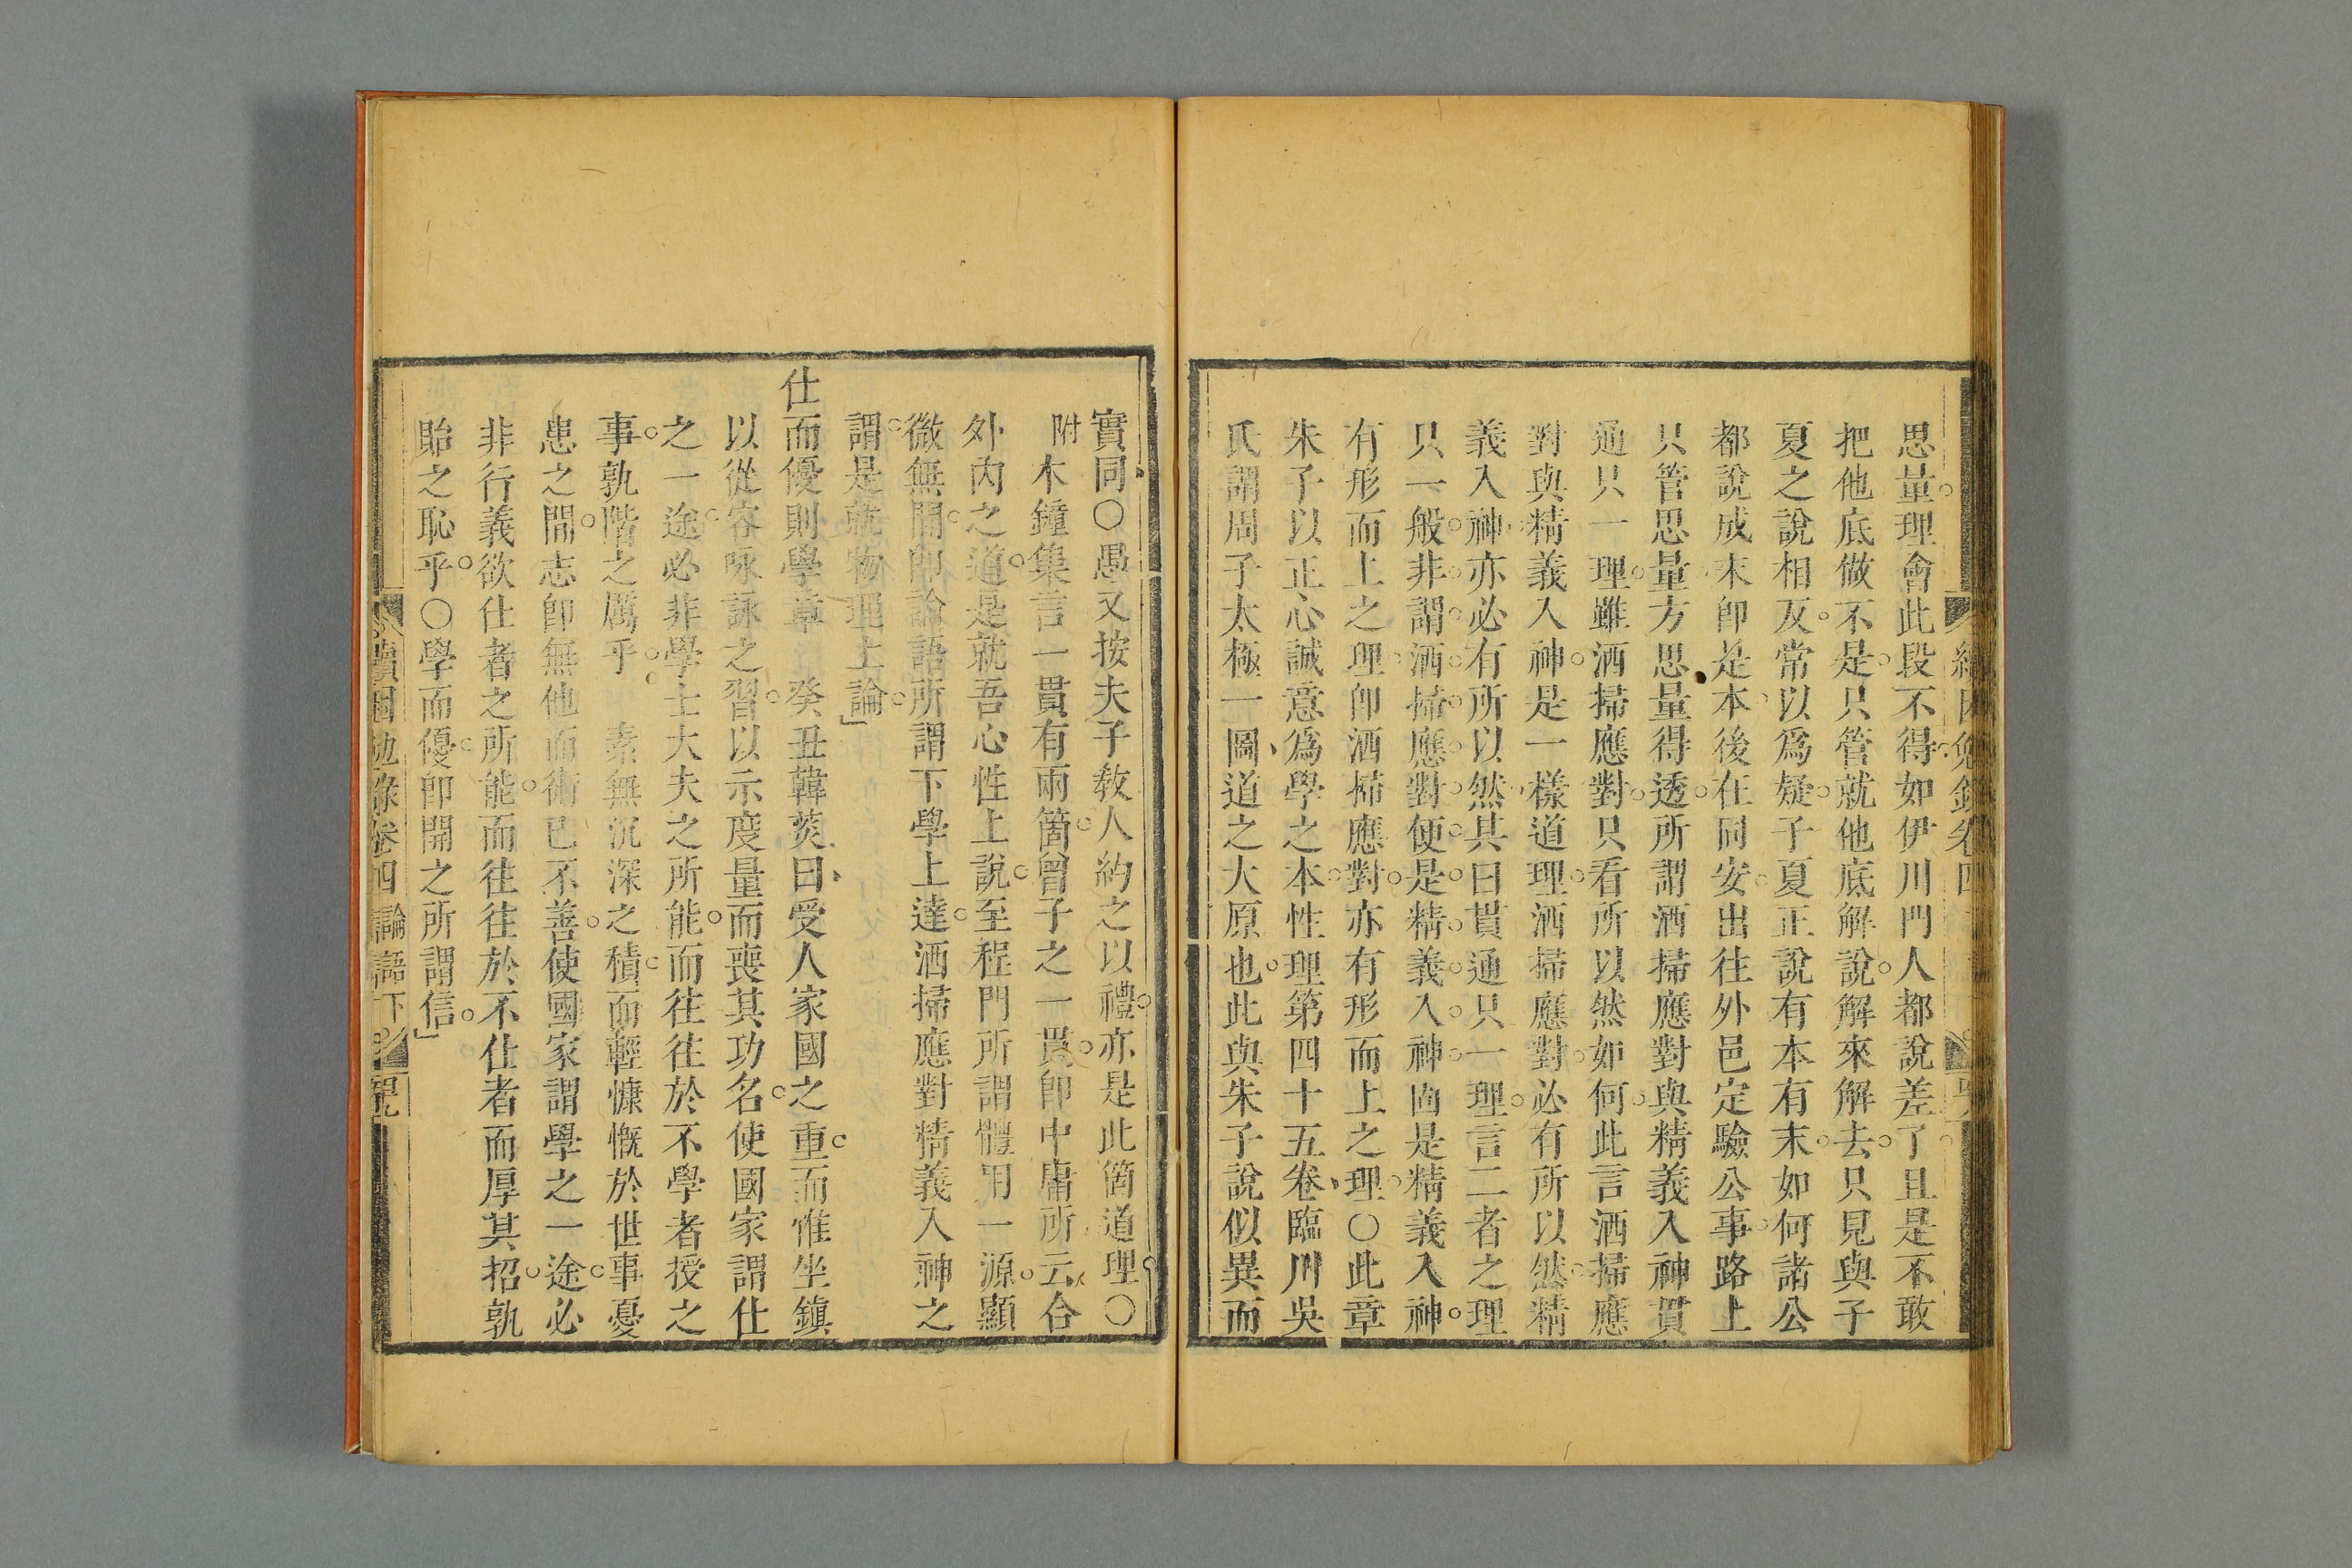 思量理會此段不得如伊川門人都說差了且是不敢
把他底做不是只管就他底解說解來解去只見與子
夏之說相反常以爲疑子夏正說有本有末如何諸公
都說成末卽是本後在同安出往外邑定驗公事路上
只管思量方思量得透所謂洒掃應對與精義入神貫
通只一理雖洒掃應對只看所以然如何此言洒掃應
對與精義入神是一樣道理洒掃應對必有所以然精
義入神亦必有所以然其曰貫通只一理言二者之理
只一般非謂洒掃應對便是精義入神固是精義入神
有形而上之理卽洒掃應對亦有形而上之理○此章
朱子以正心誠意爲學之本性理第四十五卷臨川吳
氏謂周子太極一圖道之大原也此與朱子說似異而
實同○愚又按夫子教人約之以禮亦是此箇道理○
附 木鐘集言一貫有兩箇曾子之一貫卽中庸所云合
外內之道是就吾心性上說至程門所謂體用一源顯
微無間卽論語所謂下學上達洒掃應對精義入神之
謂是就物理上論」
仕而優則學章 癸丑韓菼曰受人家國之重而惟坐鎮
以從容咏詠之習以示度量而喪其功名使國家謂仕
之一途必非學士大夫之所能而往往於不學者授之
事孰階之厲乎 素無沉深之積而輕慷慨於世事憂
患之間志卽無他而術已不善使國家謂學之一途必
非行義欲仕者之所能而往往於不仕者而厚其招孰
貽之恥乎○學而優卽開之所謂信」
續困勉錄卷四 論語下